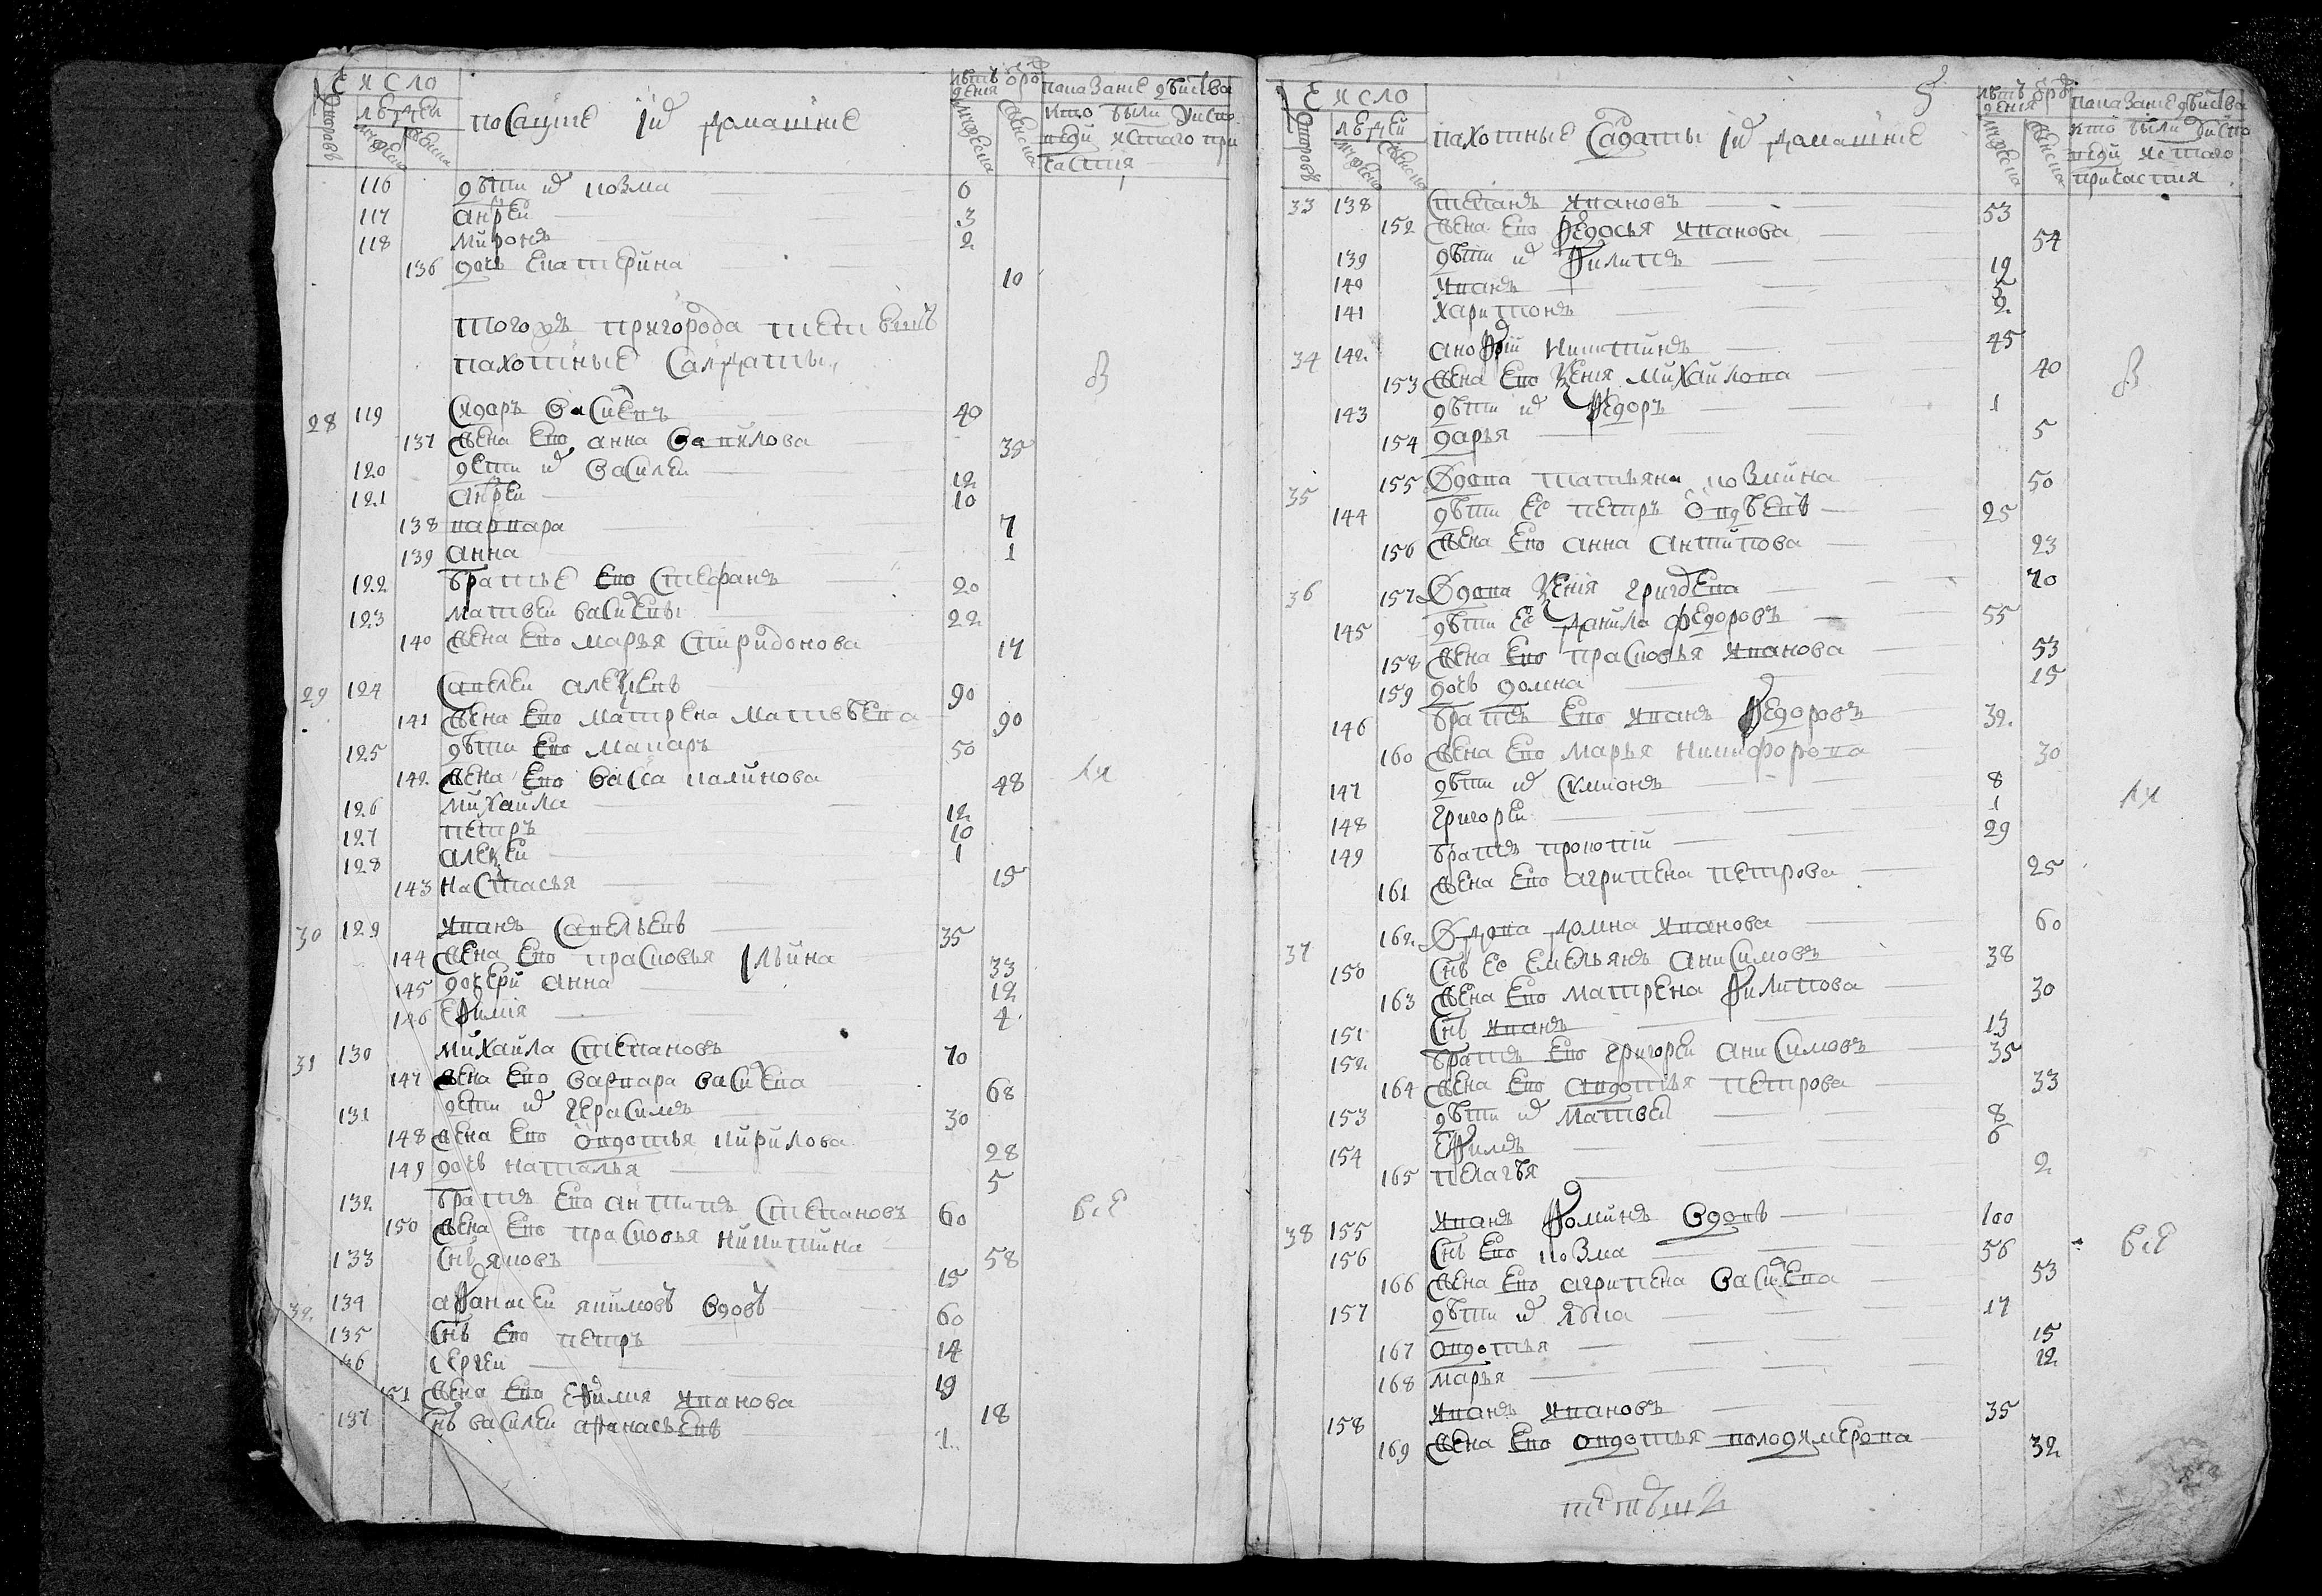 число
дворовъ
людей
мужеска
женска
посацкие и домашние
лѣтъ от рождения
мужеска
женска
показание дѣйства
кто были у испо
веди и стаго при
частия
116 дѣти ихъ козма 6
117 андрей 3
118 миронъ 2
136 дочь екатерина 10
того жъ пригорода
пахотные салдаты
28 119 сидоръ васильевъ 40
137 жена ево анна 38
120 дети ихъ василеи 12
121 андреи 10
138 варвара 7
139 анна 1
122 братье ево стефанъ 20
123 матвеи васильевы 22
140 жена ево марья спиридонова 17
29 124 савелеи алексѣевъ 90
141 жена ево матрена матвѣева 90
125 дѣти ево макаръ 50
142 жена ево васса калинова 48
126 михаила 12
127 петръ 10
128 алексеи 1
143 настасья 15
30 129 иванъ савельевъ 35
144 жена ево прасковья ильина 33
145 дочери анна 12
146 ефимия 4
31 130 михаила степановъ 70
147 жена ево варвара васильева 68
131 дети ихъ герасимъ 30
148 жена ево овдотья кирилова 28
149 дочь наталья 5
132 братъ ево антипъ степановъ 60
150 жена ево прасковья никитина 58
133 снъ яковъ 15
32 134 афанасеи якимовъ вдовъ 60
135 снъ ево петръ 14
136 сергеи 19
151 жена ево ефимия иванова 18
137 снъ василеи афанасьевъ 1
все
число
дворовъ
людей
мужеска
женска
пахотные салдаты и домашние
лѣтъ от рождения
мужеска
женска
показание дѣйства
кто были у испо
веди и стаго
причастия
33 138 степанъ ивановъ 53
152 жена ево федосья иванова 54
139 дѣти ихъ филипъ 19
140 иванъ 5
141 харитонъ 2
34 142 никитинъ 45
153 жена ево ксения михаилова 40
143 дѣти ихъ федоръ 1
154 дарья 5
35 155 вдова татьяна козмина 50
144 дѣти ее петръ овдѣевъ 25
156 жена ево анна антипова 23
36 157 вдова ксения григорьева 70
145 дѣти ее данила федоровъ 55
158 жена ево прасковья иванова 53
159 дочь домна 15
146 братъ ево иванъ федоровъ 32
160 жена ево марья никифорова 30
147 дѣти ихъ симионъ 8
148 григореи 1
149 братъ прокопий 29
161 жена ево агрипена петрова 25
37 162 вдова домна иванова 60
150 снъ ее емельянъ анисимовъ 38
163 жена ево матрена филипова 30
151 снъ иванъ 13
152 братъ ево григореи анисимовъ 35
164 жена ево авдотья петрова 33
153 дѣти ихъ матвеи 8
154 ефимъ 6
165 пелагѣя 2
38 155 иванъ фоминъ вдовъ 100
156 снъ ево козма 56
166 жена ево агрипена васильева 53
157 дѣти ихъ 17
167 овдотья 15
168 марья 12
158 иванъ ивановъ 35
169 жена ево овдотья володимерова 32
все